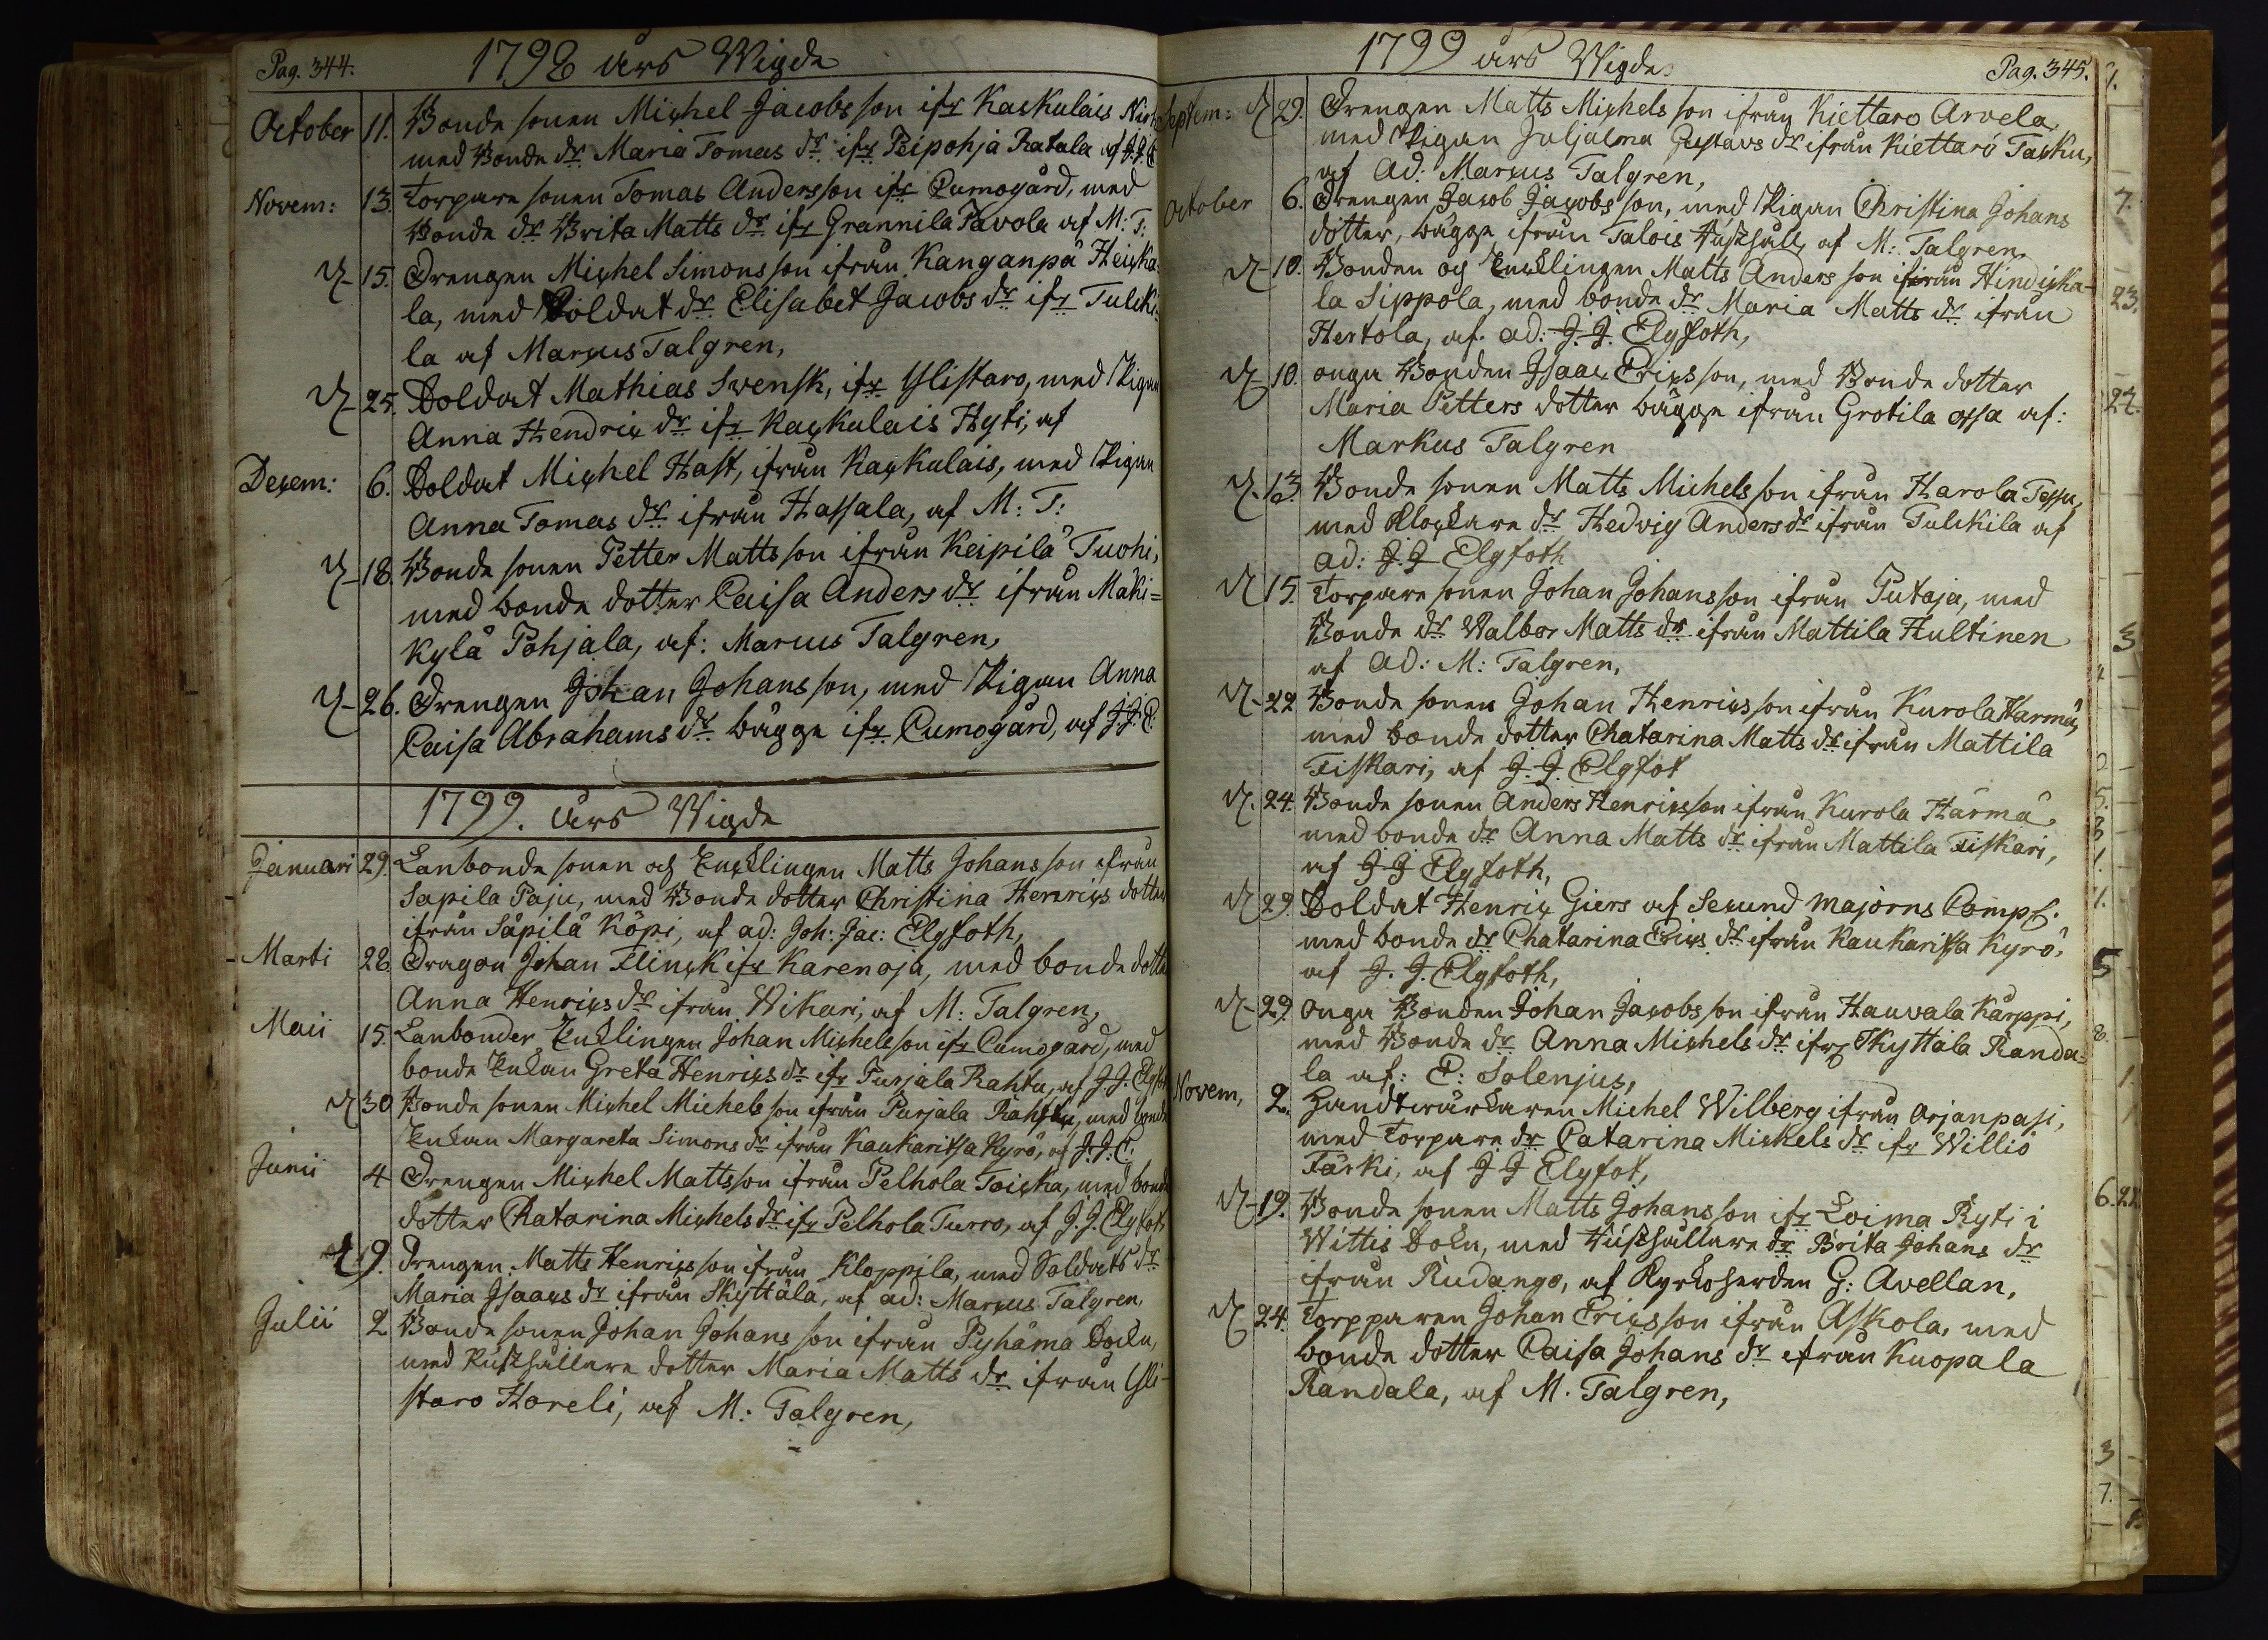 Pag. 344.
1798 års Wigde
October 11. Bonde sonen Michel Jacobs son ifr Kackulais
med Bonde dr Maria Tomas dr ifr Peipohja Ratala af J. J. E
Novem: 13. Torpare sonen Tomas Andersson ifr Cumogård, med
Bonde dr Brita Matts dr ifr Grannila Pavola af M. T:
15. Drengen Michel Simons son ifrån Kanganpä Heicka-
la, med Soldat dr Elisabet Jacobs dr ifr Tulcki-
la af Marcus Talgren,
25. Soldat Mathias Svensk, ifr Ylistaro, med Pigan
Anna Hendrix dr ifr Kackulais Hyti, af
Decem: 6. Soldat Michel Hast, ifrån Kackulais, med Pigan
Anna Tomas dr ifrån Hassala, af M: T:
18. Bonde sonen Petter Matts son ifrån Keipilä Tuohi,
med bonde dotter Caisa Anders dr ifrån Mäki=
kylä Pohjala, af: Marcus Talgren,
26. Drengen Johan Johans son, med Pigan Anna
Caisa Abrahams dr bägge ifr Cumogård, af J. J. E.
1799. års Wigde
Januari 29. Lanbonde sonen och Encklingen Matts Johans son ifrån
Sapila Paju, med Bonde dotter Christina Henrics dotter
ifrån Säpilä Köpi, af ad: Joh: Jac: Elgfoth,
Marti 28. Dragon Johan Flinck ifr Karenoja, med bonde dotter
Anna Henrics dr ifrån Wikari, af M: Talgren,
Maii 15. Lanbonder Encklingen Johan Michels son ifr Cumogård, med
bonde Enkan Greta Henrics dr ifr Purjala Rahtu, af J. J. Elgfot
30. Bonde sonen Michel Michels son ifrån Purjala Rahtu, med bonde
Enkan Margareta Simons dr ifrån Kaukaritsa Kyrö, af J. J. E:
Junii 4 Drengen Michel Mattsson ifrån Pelhola Toicka, med bonde
dotter Chatarina Michels dr ifr Pelhola Turro, af J. J. Elgfoth
19. Drengen Matts Henrics son ifrån Kloppila, med Soldats dr
Maria Isaacs dr ifrån Skyttälä, af ad: Marcus Talgren,
Julii 2 Bonde sonen Johan Johans son ifrån Pyhäma Sockn,
med Rusthållare dotter Maria Matts dr ifrån Yli-
staro Horeli, af M: Talgren,
1799 års Wigde
Pag. 345.
Septem: 29. Drengen Matts Michels son ifrån Kiettaro Arvela,
med Pigan Juljalma Gustavs dr ifrån Kiettarö Tasku,
af Ad: Marcus Talgren,
October 6. Drengen Jacob Jacobs son, med Pigan Christina Johans
dotter, bägge ifrån Talois Rusthåll, af M: Talgren,
10. Bonden och Encklingen Matts Anders son ifrån Hindicka-
la Sippola, med bonde dr Maria Matts dr ifrån
Hertola, af ad: J. J. Elgfoth,
10. onga Bonden Isaac Erics son, med Bonde dotter
Maria Petters dotter bägge ifrån Grotila ossa af:
Markus Talgren
13. Bonde sonen Matts Michels son ifrån Harola Tessu,
med Klockare dr Hedvig Anders dr ifrån Tulckila af
ad: J. J Elgfoth
15. Torpare sonen Johan Johans son ifrån Putaja, med
Bonde dr Walbor Matts dr ifrån Mattila Hultinen
af Ad: M: Talgren,
22 Bonde sonen Johan Henrics son ifrån Kurola Harmä,
med bonde dotter Chatarina Matts dr ifrån Mattila
Fiskari, af J. J. Elgfot
24. Bonde sonen Anders Henricsson ifrån Kurola Härmä,
med bonde dr Anna Matts dr ifrån Mattila Fiskari,
af J J Elgfoth,
29. Soldat Henric Giers af Secund majorns Comp:
med bonde dr Chatarina Erics dr ifrån Kaukaritsa Kyrö,
af J. J. Elgfoth,
29. onga Bonden Johan Jacobs son ifrån Hauvala Karppi,
med Bonde dr Anna Michels dr ifr Skyttälä Randa=
la af: E: Solenjus,
Novem, 2. Handtvärckaren Michel Wilberg ifrån Arjanpasi,
med Torpare dr Catarina Mickels dr ifr Williö
Färki, af J J Elgfot,
19. Bonde sonen Matts Johans son ifr Loima Ryti i
Wittis Sokn, med Rusthållare dr Brita Johans dr
ifrån Rudango, af Kyrkoherden G: Avellan,
24. Torpparen Johan Ericsson ifrån Askola, med
bonde dotter Caisa Johans dr ifrån Kuopala
Randala, af M. Talgren,